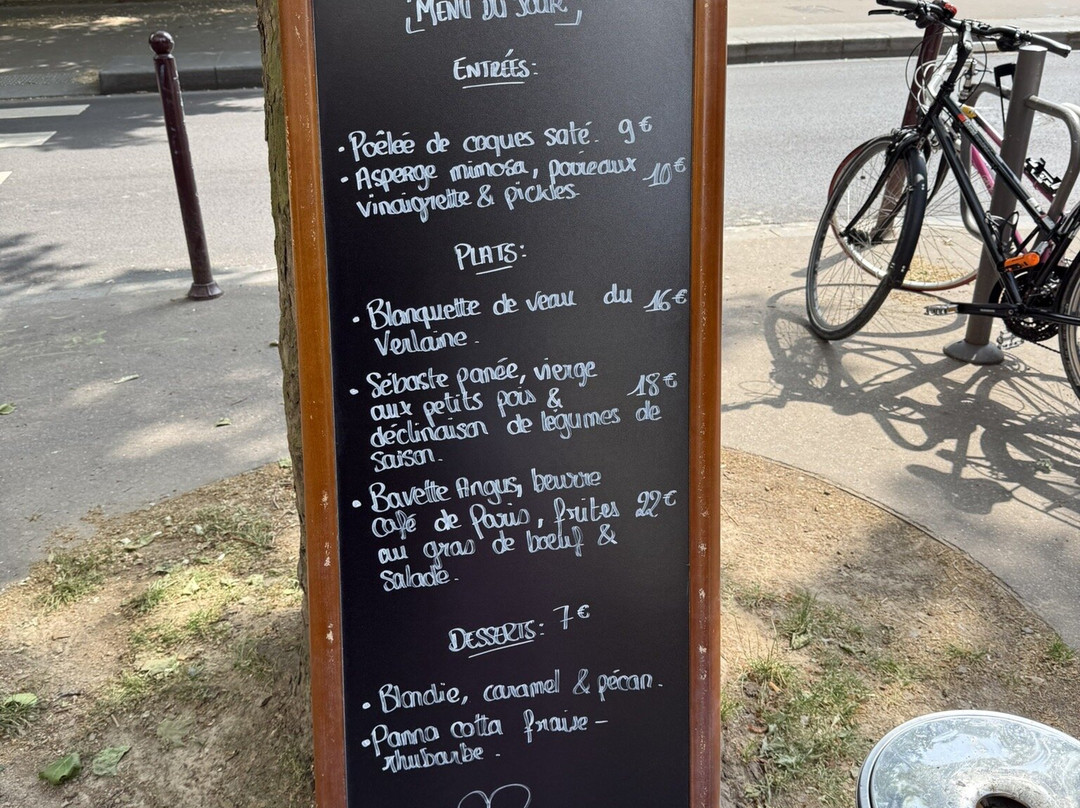 MENU DU JOUR
ENTRÉES:
• Poêlée de coques saté. 9€
• Asperge mimosa, poireaux 10€
vinaigrette & pickles.
PLATS:
• Blanquette de veau du 16€
Verlaine.
• Sébaste panée, vierge
aux petits pois & 18€
déclinaison de légumes de
saison.
• Bavette Angus, beurre
café de Paris, frites 22€
au gras de boeuf &
salade.
DESSERTS: 7€
• Blondie, caramel & pécan.
• Panna cotta fraise -
rhubarbe.